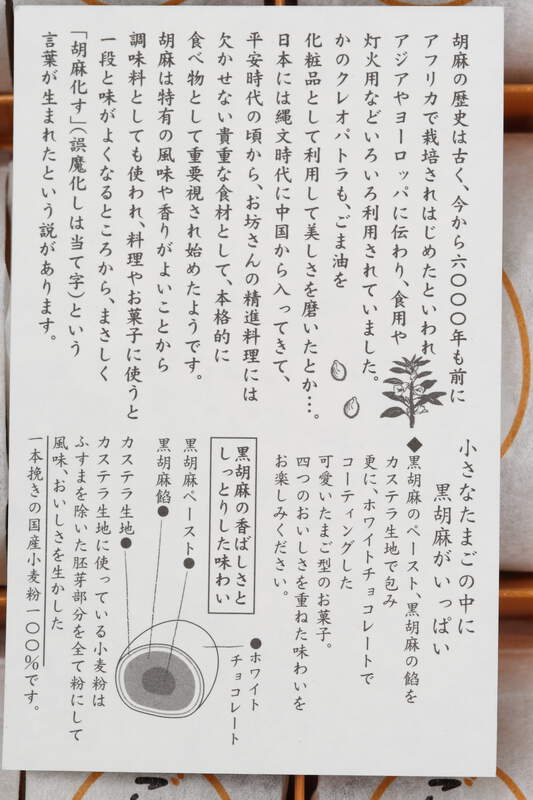 胡麻の歴史は古く、今から六〇〇〇年も前に
アフリカで栽培されはじめたといわれ
アジアやヨーロッパに伝わり、食用や
灯火用などいろいろ利用されていました。
かのクレオパトラも、ごま油を
化粧品として利用して美しさを磨いたとか…。
日本には縄文時代に中国から入ってきて、
平安時代の頃から、お坊さんの精進料理には
欠かせない貴重な食材として、本格的に
食べ物として重要視され始めたようです。
胡麻は特有の風味や香りがよいことから
調味料としても使われ、料理やお菓子に使うと
一段と味がよくなるところから、まさしく
「胡麻化す」(誤魔化しは当て字)という
言葉が生まれたという説があります。
小さなたまごの中に
黒胡麻がいっぱい
◆黒胡麻のペースト、黒胡麻の餡を
カステラ生地で包み
更に、ホワイトチョコレートで
コーティングした
可愛いたまご型のお菓子。
四つのおいしさを重ねた味わいを
お楽しみください。
黒胡麻の香ばしさと
しっとりした味わい
●ホワイト
チョコレート
黒胡麻ペースト●
黒胡麻餡●
カステラ生地●
カステラ生地に使っている小麦粉は
ふすまを除いた胚芽部分を全て粉にして
風味、おいしさを生かした
一本挽きの国産小麦粉一〇〇%です。